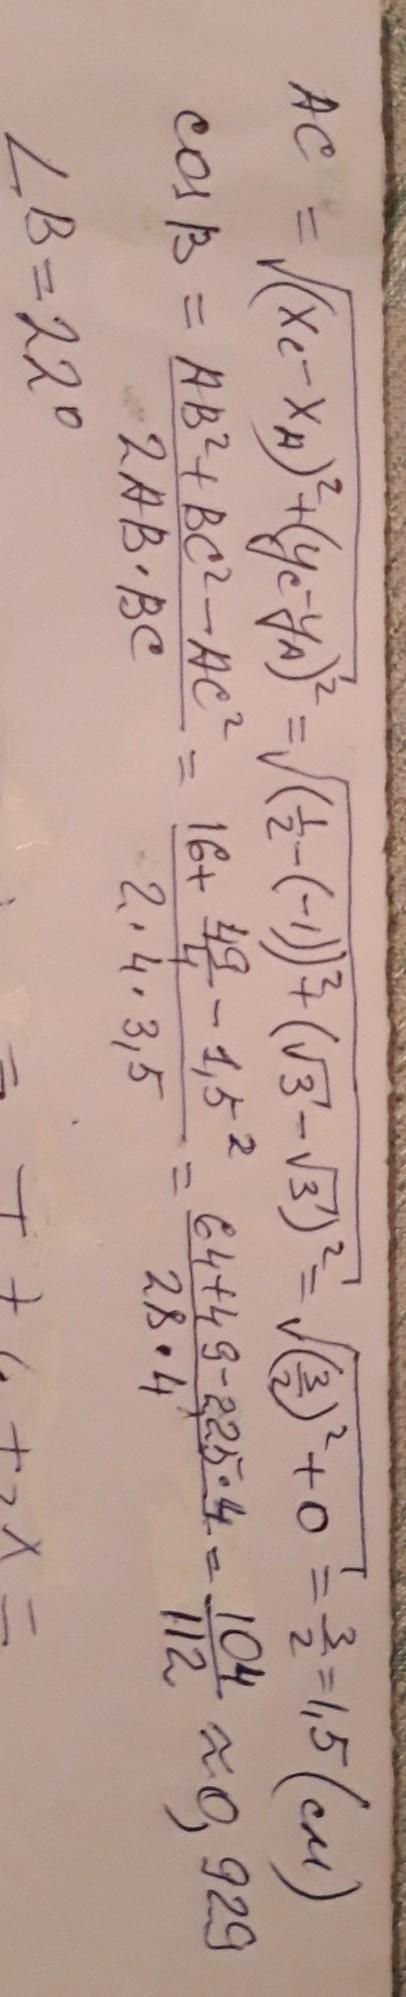 AC = √((x_C - x_A)² + (y_C - y_A)²) = √((1/2 - (-1))² + (√3 - √3)²) = √((3/2)² + 0) = 3/2 = 1,5 (см)
cos B = (AB² + BC² - AC²)/(2AB·BC) = (16 + 49/4 - 1,5²)/(2·4·3,5) = (64 + 49 - 2,25·4)/(28·4) = 104/112 ≈ 0,929
∠B = 22°